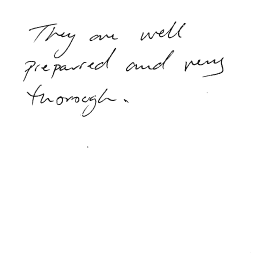 They are well
prepared and very
thorough.